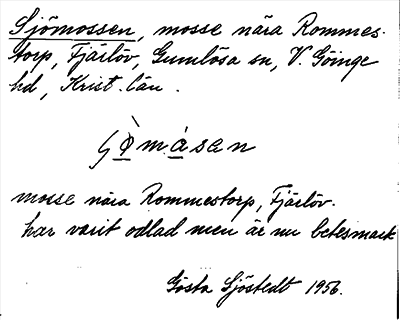 Sjömossen, mosse nära Rommes-
torp, Fjärlöv, Gumlösa sn, V. Göinge
hd, Krist. län.
mosse nära Rommestorp, Fjärlöv.
har varit odlad men är nu betesmark
Gösta Sjöstedt 1956.